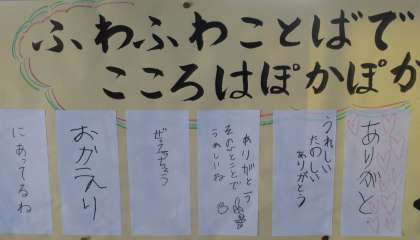 ふわふわことばで
こころはぽかぽか
ありがと
うれしい
たのしい
ありがとう
ありがとう
そのひとことで
うれしいね
おかえり
にあってるね